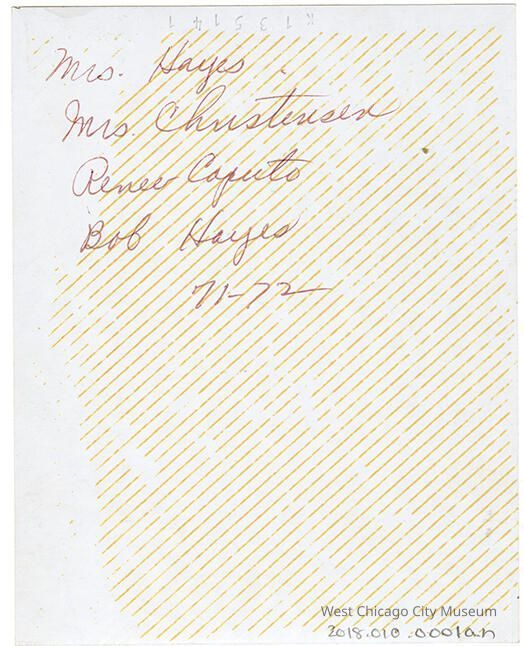 K 1 3 5 1 4 1
Mrs. Hayes
Mrs. Christensen
Renee Caputo
Bob Hayes
71-72
West Chicago City Museum
2018.010.0001an